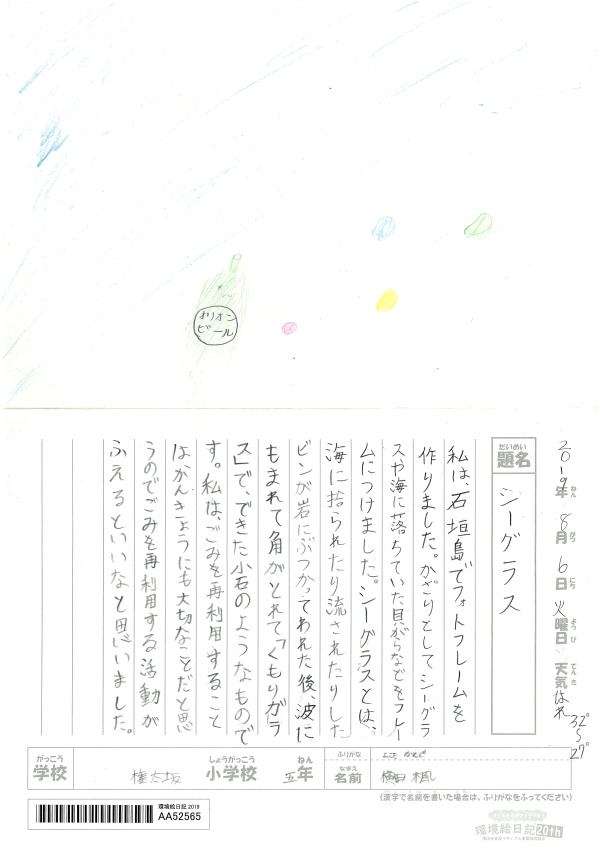 オリオン
ビール
2019年 8月 6日 火曜日 天気 はれ 32°〜27°
ねん がつ にち ようび てんき
だいめい
題名 シーグラス
私は、石垣島でフォトフレームを
作りました。かざりとしてシーグラ
スや海に落ちていた貝がらなどをフレー
ムにつけました。シーグラスとは、
海に捨られたり流されたりした
ビンが岩にぶつかってわれた後、波に
もまれて角がとれて「くもりガラ
ス」で、できた小石のようなもので
す。私は、ごみを再利用すること
はかんきょうにも大切なことだと思
うのでごみを再利用する活動が
ふえるといいなと思いました。
がっこう しょうがっこう ねん ふりがな
学校 権太坂 小学校 五年 なまえ 名前 横田 楓
(漢字で名前を書いた場合は、ふりがなをふってください)
環境絵日記 2019
AA52565
環境絵日記 20th